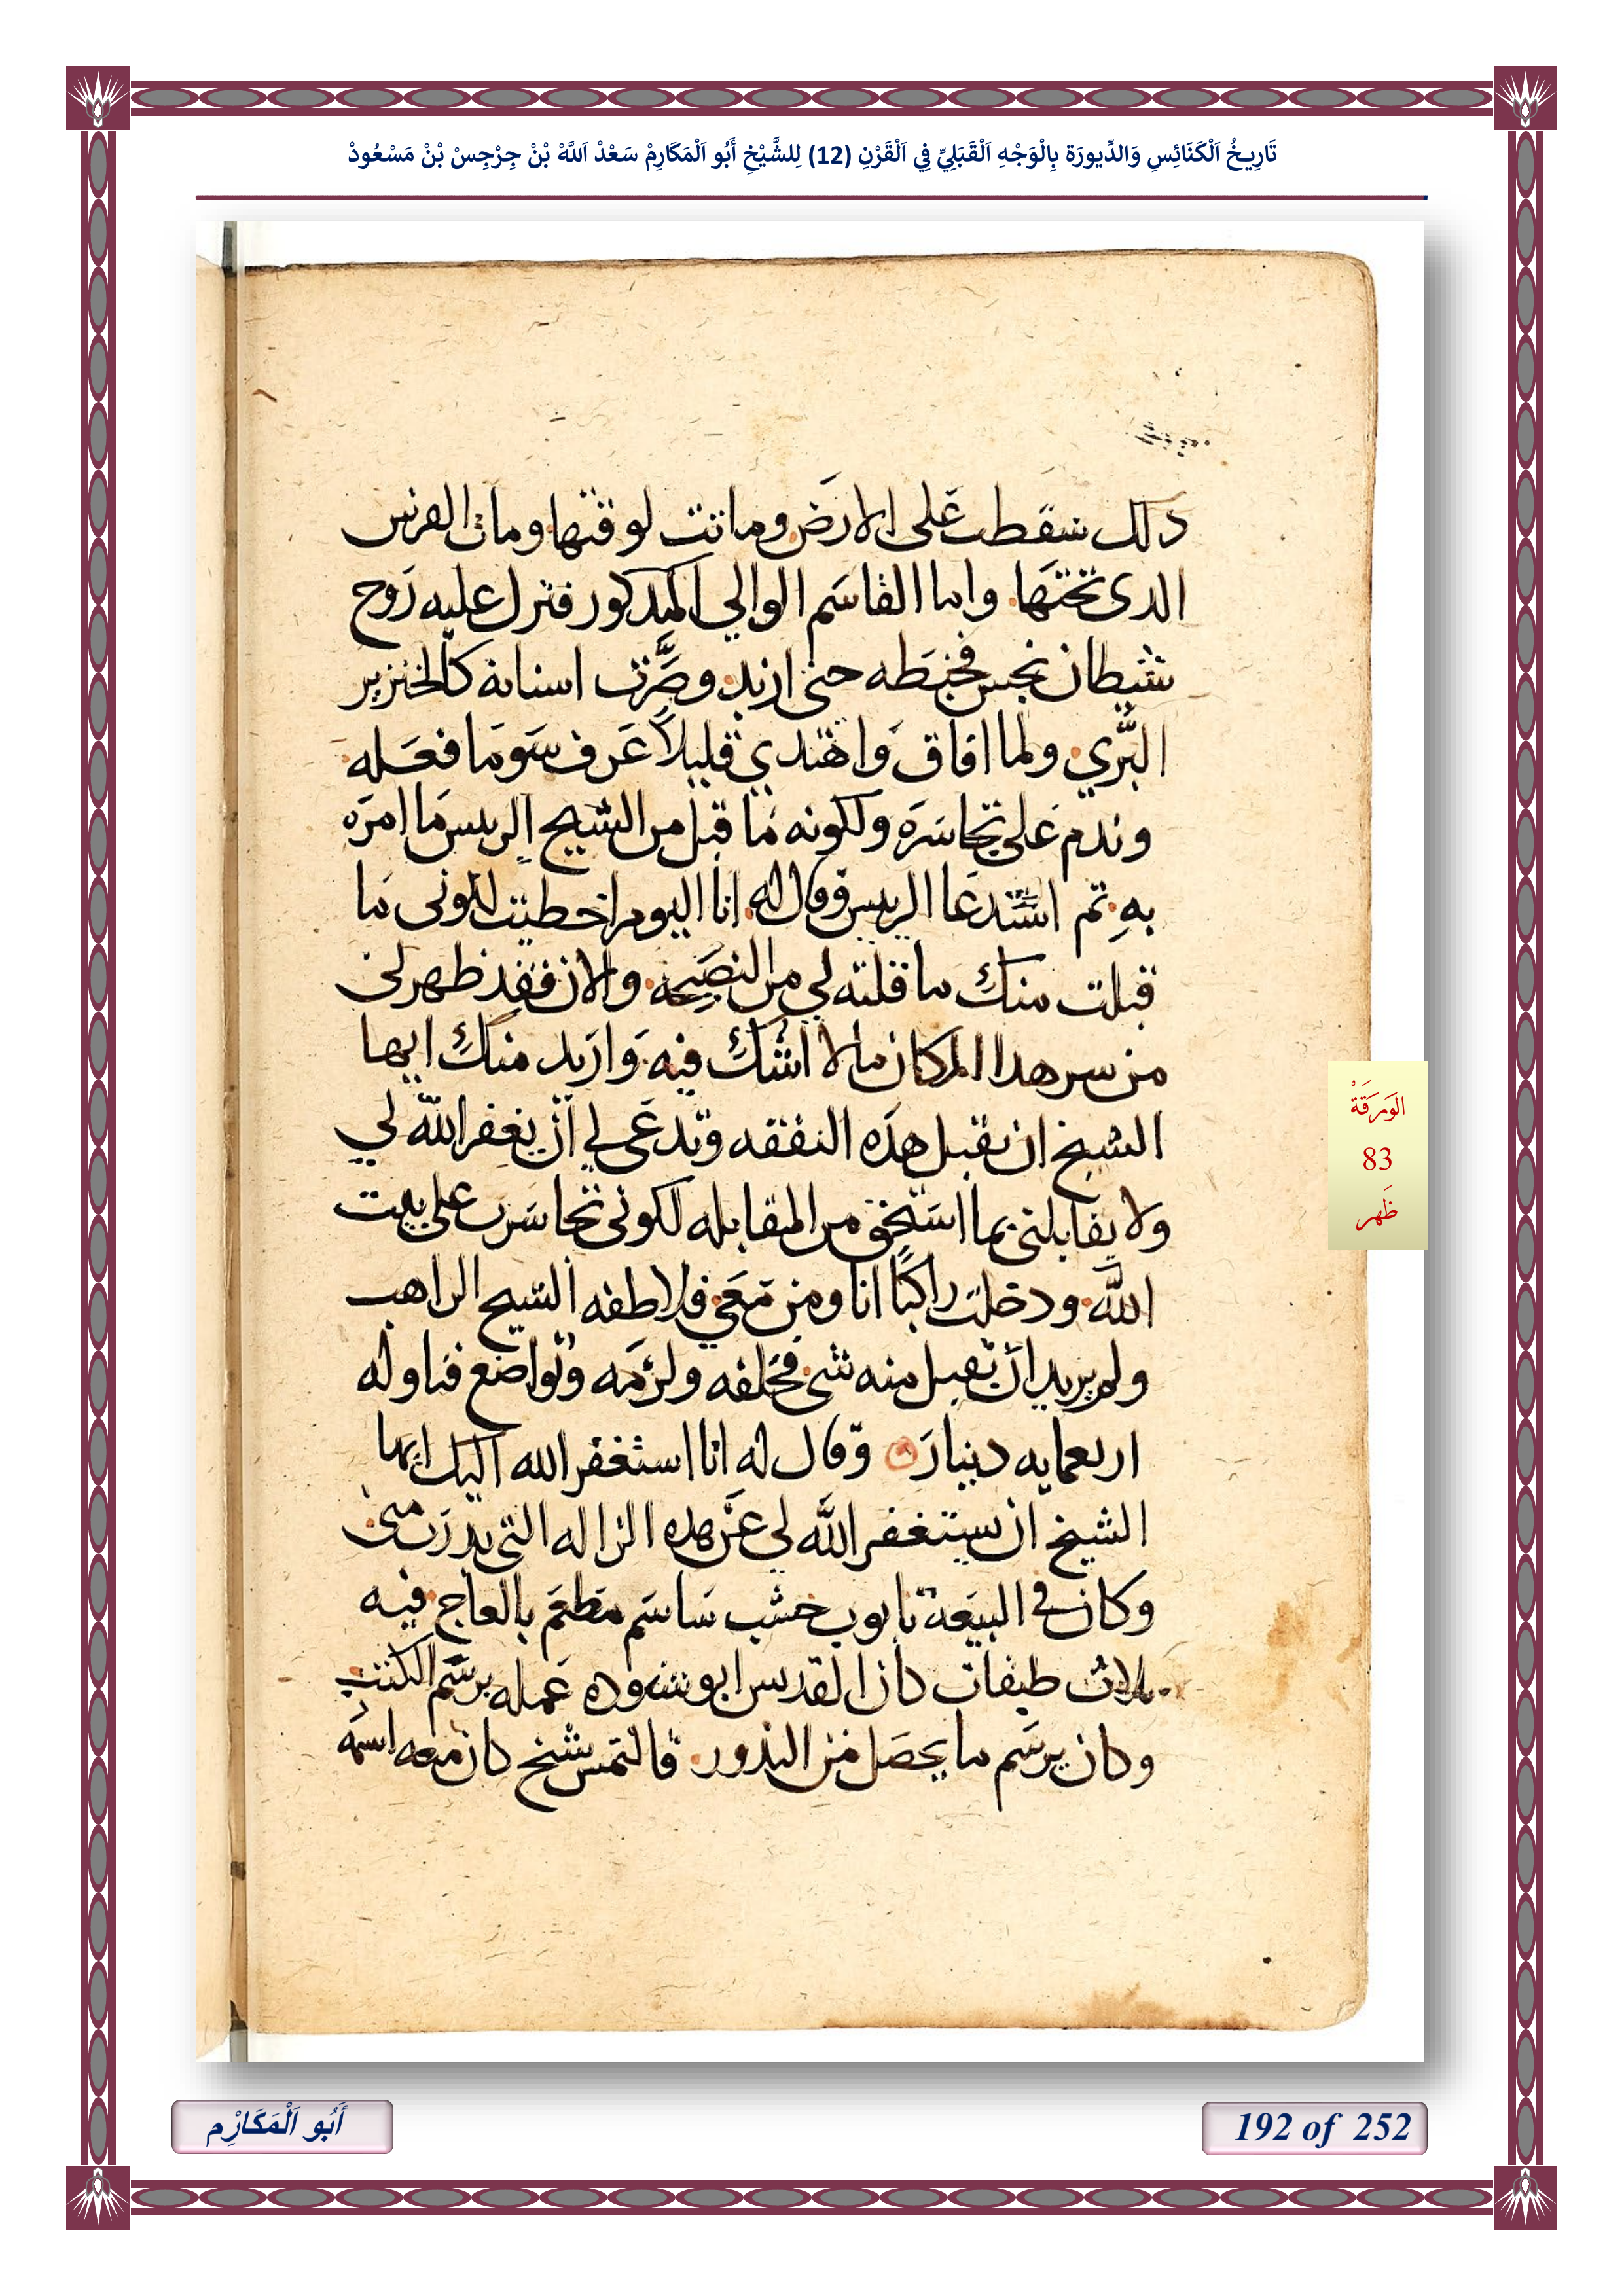 تَارِيخُ اَلْكَنَائِسِ وَالدِّيورَة بِالْوَجْهِ اَلْقَبَلِيِّ فِي اَلْقَرْنِ (12) لِلشَّيْخِ أَبُو اَلْمَكَارِمْ سَعْدْ اَللَّهْ بْنْ جِرْجِسْ بْنْ مَسْعُودْ
دلك سقطت على الارض وماتت لوقتها ومات الفرس
الدى تحتها واما القاسم الوالي المدكور فنزل عليه روح
شيطان نجس فخبطه حتى ازبد وصرت اسنانه كالخنزير
البري ولما افاق واهتدي قليلا عرف سو ما فعله
وندم على تجاسره ولكونه ما قبل من الشيخ الريس ما امره
به تم استدعا الريس وقال له انا اليوم اخطيت لكونى ما
قبلت منك ما قلته لي من النصيحه والان فقد ظهر لى
من سر هدا المكان ما لا اشك فيه واريد منك ايها
الشيخ ان تقبل هده النفقه وتدعى لي ان يغفر الله لي
ولا يقابلنى بما استحق من المقابله لكونى تجاسرت على بيت
الله ودخلت راكبا انا ومن معي فلاطفه الشيخ الراهب
ولم يريد ان يقبل منه شى فحلفه ولزمه وتواضع فناوله
اربعمايه دينار وقال له انا استغفر الله اليك ايها
الشيخ ان يستغفر الله لى عن هده الزاله التى بدرت منى
وكان في البيعة تابوت خشب ساسم مطعم بالعاج فيه
تلات طبقات كان القديس ابو شنوده عمله برسم الكتب
وكان يرسم ما يحصل من الندور فالتمس شخ كان معه اسمه
الوَرَقَةْ
83
ظَهر
أَبُو اَلْمَكَارِْم
192 of 252